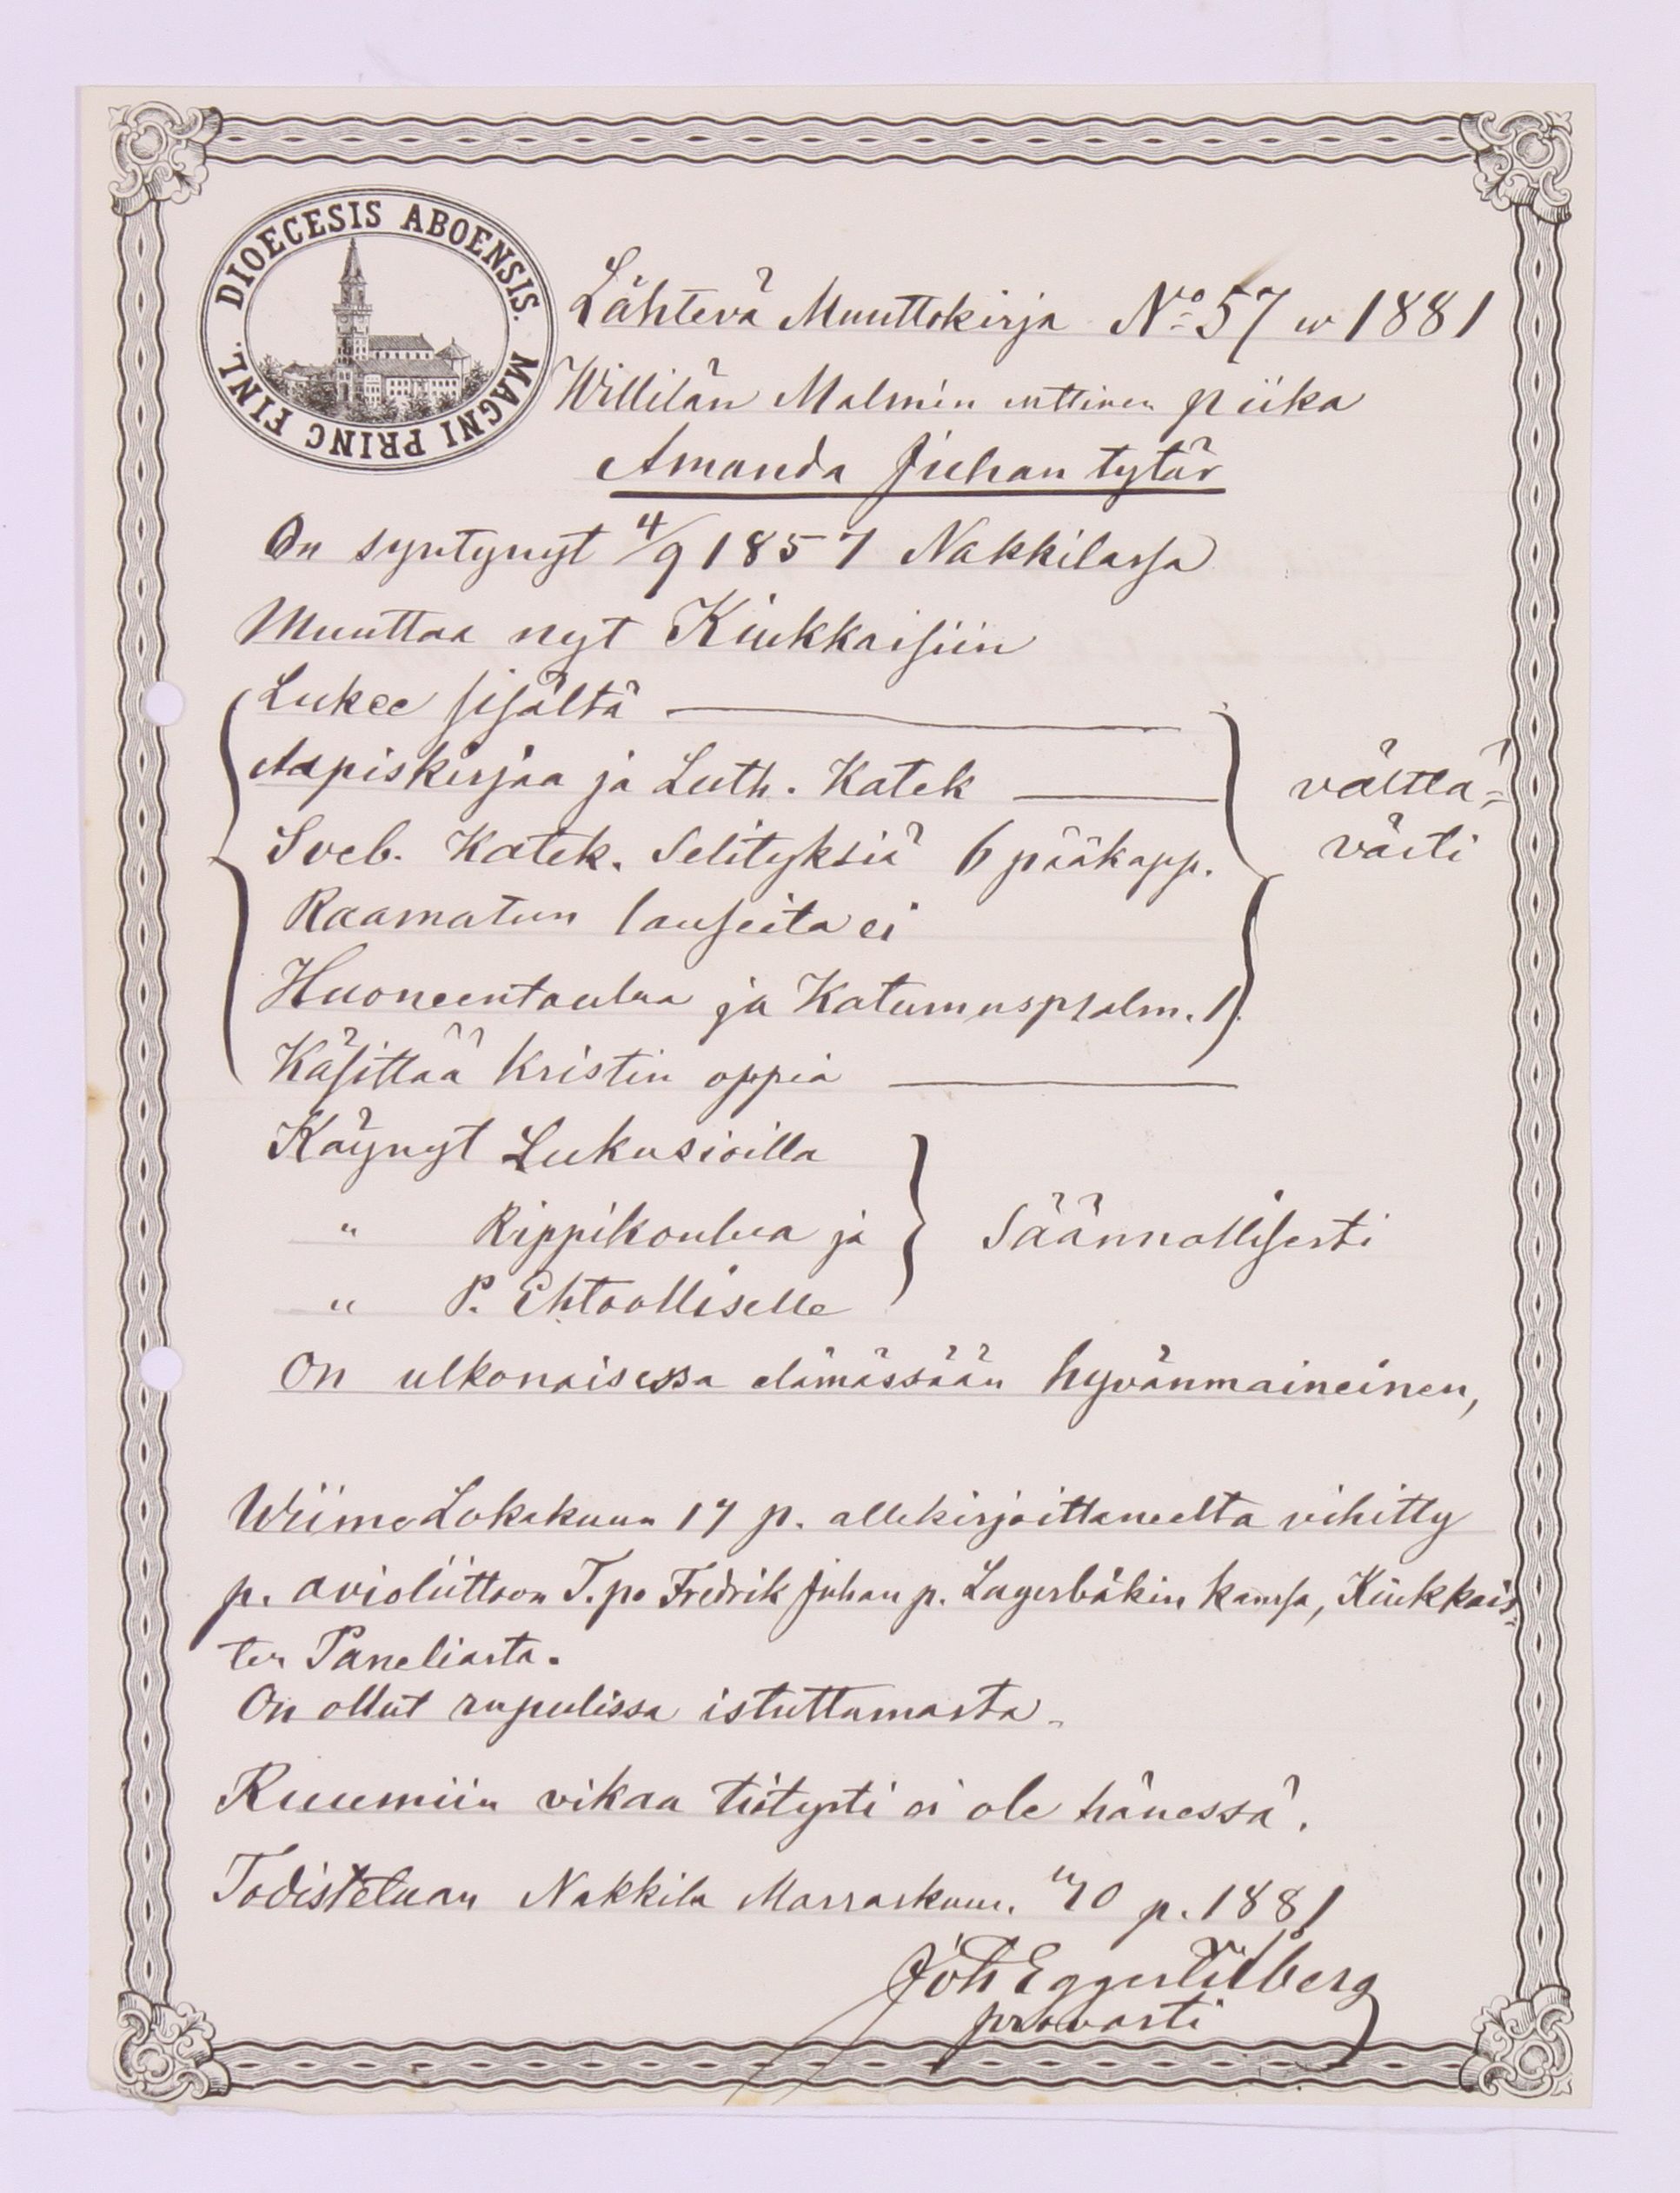 DIOECESIS ABOENSIS. MAGNI PRINC FINL.
Lähtevä Muuttokirja No 57 w 1881
Willilän Malmin piika
Amanda Juhan tytär
On syntynyt 4/9 1857 Nakkilassa
Muuttaa nyt Kiukkaisiin
Lukee sisältä
Aapiskirjaa ja Luth. Katek
Sveb. Katek. Selityksiä 6 pääkapp.
Raamatun lauseita ei
Huoneentaulua ja Katumuspsalm. 1.
Käsittää kristin oppia
välttä-
västi
Käynyt Lukusioilla
" Rippikoulua ja
" P. Ehtoolliselle
Säännollisesti
On ulkonaisessa elämässään hyvänmaineinen,
Wiime Lokakuun 17 p. allekirjoittaneelta vihitty
p. avioliittoon T.po Fredrik Juhan p. Lagerbäkin kanssa, Kiukkais-
ten Paneliasta.
On ollut rupulissa istuttamasta.
Ruumiin vikaa tiötysti ei ole hänessä.
Todistetaan Nakkila Marraskuun. 10 p. 1881
Joh Eggert Lilberg
provasti